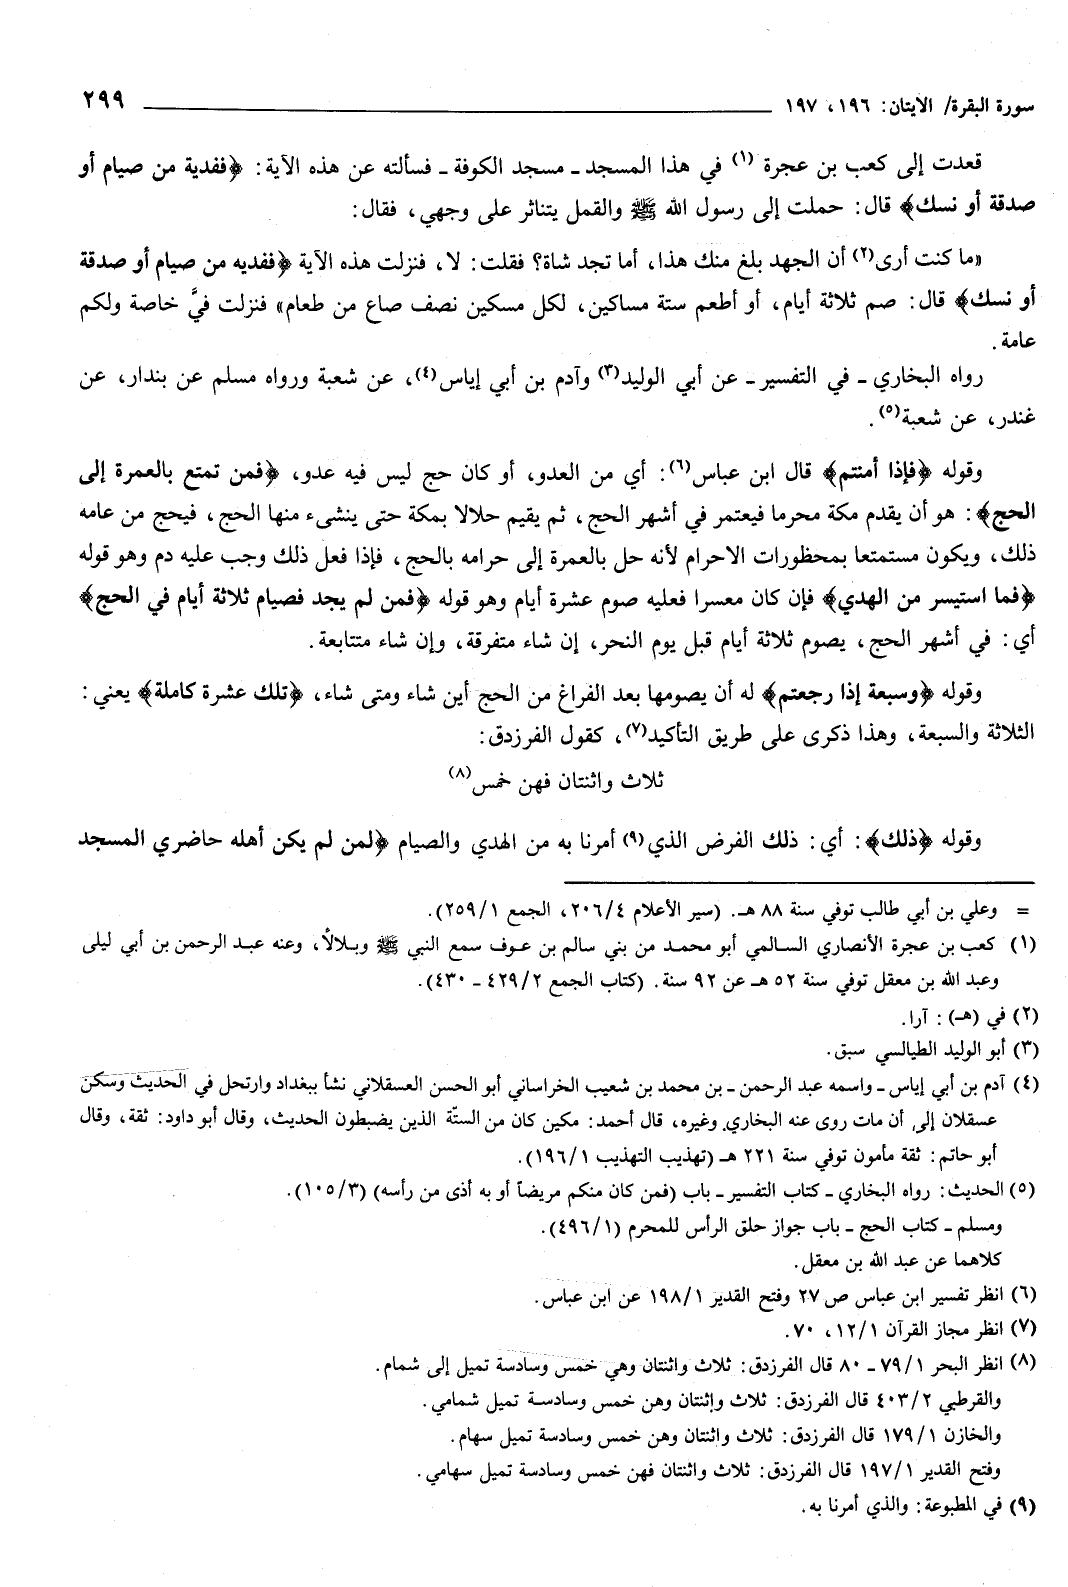 سورة البقرة/ الآيتان: ١٩٦، ١٩٧ ٢٩٩
قعدت إلى كعب بن عجرة (١) في هذا المسجد ـ مسجد الكوفة ـ فسألته عن هذه الآية: ﴿ففدية من صيام أو
صدقة أو نسك﴾ قال: حملت إلى رسول الله ﷺ والقمل يتناثر على وجهي، فقال:
«ما كنت أرى(٢) أن الجهد بلغ منك هذا، أما تجد شاة؟ فقلت: لا، فنزلت هذه الآية ﴿ففديه من صيام أو صدقة
أو نسك﴾ قال: صم ثلاثة أيام، أو أطعم ستة مساكين، لكل مسكين نصف صاع من طعام» فنزلت فيَّ خاصة ولكم
عامة.
رواه البخاري ـ في التفسير ـ عن أبي الوليد(٣) وآدم بن أبي إياس(٤)، عن شعبة ورواه مسلم عن بندار، عن
غندر، عن شعبة(٥).
وقوله ﴿فإذا أمنتم﴾ قال ابن عباس(٦): أي من العدو، أو كان حج ليس فيه عدو، ﴿فمن تمتع بالعمرة إلى
الحج﴾: هو أن يقدم مكة محرما فيعتمر في أشهر الحج، ثم يقيم حلالا بمكة حتى ينشىء منها الحج، فيحج من عامه
ذلك، ويكون مستمتعا بمحظورات الاحرام لأنه حل بالعمرة إلى حرامه بالحج، فإذا فعل ذلك وجب عليه دم وهو قوله
﴿فما استيسر من الهدي﴾ فإن كان معسرا فعليه صوم عشرة أيام وهو قوله ﴿فمن لم يجد فصيام ثلاثة أيام في الحج﴾
أي: في أشهر الحج، يصوم ثلاثة أيام قبل يوم النحر، إن شاء متفرقة، وإن شاء متتابعة.
وقوله ﴿وسبعة إذا رجعتم﴾ له أن يصومها بعد الفراغ من الحج أين شاء ومتى شاء، ﴿تلك عشرة كاملة﴾ يعني:
الثلاثة والسبعة، وهذا ذكرى على طريق التأكيد(٧)، كقول الفرزدق:
ثلاث واثنتان فهن خمس(٨)
وقوله ﴿ذلك﴾: أي: ذلك الفرض الذي(٩) أمرنا به من الهدي والصيام ﴿لمن لم يكن أهله حاضري المسجد
= وعلي بن أبي طالب توفي سنة ٨٨ هـ. (سير الأعلام ٢٠٦/٤، الجمع ٢٥٩/١).
(١) كعب بن عجرة الأنصاري السالمي أبو محمد من بني سالم بن عوف سمع النبي ﷺ وبلالاً، وعنه عبد الرحمن بن أبي ليلى
وعبد الله بن معقل توفي سنة ٥٢ هـ عن ٩٢ سنة. (كتاب الجمع ٤٢٩/٢ ـ ٤٣٠).
(٢) في (هـ): آرا.
(٣) أبو الوليد الطيالسي سبق.
(٤) آدم بن أبي إياس ـ واسمه عبد الرحمن ـ بن محمد بن شعيب الخراساني أبو الحسن العسقلاني نشأ ببغداد وارتحل في الحديث وسكن
عسقلان إلى أن مات روى عنه البخاري وغيره، قال أحمد: مكين كان من الستّة الذين يضبطون الحديث، وقال أبو داود: ثقة، وقال
أبو حاتم: ثقة مأمون توفي سنة ٢٢١ هـ (تهذيب التهذيب ١٩٦/١).
(٥) الحديث: رواه البخاري ـ كتاب التفسير ـ باب (فمن كان منكم مريضاً أو به أذى من رأسه) (١٠٥/٣).
ومسلم ـ كتاب الحج ـ باب جواز حلق الرأس للمحرم (٤٩٦/١).
كلاهما عن عبد الله بن معقل.
(٦) انظر تفسير ابن عباس ص ٢٧ وفتح القدير ١٩٨/١ عن ابن عباس.
(٧) انظر مجاز القرآن ١٢/١، ٧٠.
(٨) انظر البحر ٧٩/١ ـ ٨٠ قال الفرزدق: ثلاث واثنتان وهي خمس وسادسة تميل إلى شمام.
والقرطبي ٤٠٣/٢ قال الفرزدق: ثلاث وإثنتان وهن خمس وسادسة تميل شمامي.
والخازن ١٧٩/١ قال الفرزدق: ثلاث واثنتان وهن خمس وسادسة تميل سهام.
وفتح القدير ١٩٧/١ قال الفرزدق: ثلاث واثنتان فهن خمس وسادسة تميل سهامي.
(٩) في المطبوعة: والذي أمرنا به.